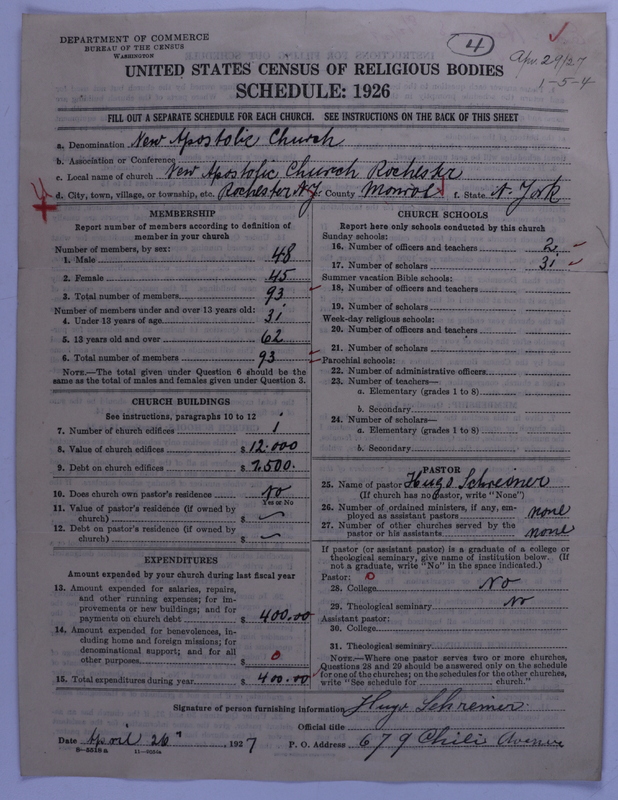 DEPARTMENT OF COMMERCE
BUREAU OF THE CENSUS
WASHINGTON
4
Apr. 29/27
1-5-4
UNITED STATES CENSUS OF RELIGIOUS BODIES
SCHEDULE: 1926
FILL OUT A SEPARATE SCHEDULE FOR EACH CHURCH. SEE INSTRUCTIONS ON THE BACK OF THIS SHEET
a. Denomination New Apostolic Church
b. Association or Conference
c. Local name of church New Apostolic Church Rochester
d. City, town, village, or township, etc. Rochester N.Y. County Monroe f. State N. York
MEMBERSHIP
Report number of members according to definition of
member in your church
Number of members, by sex:
1. Male 48
2. Female 45
3. Total number of members 93
Number of members under and over 13 years old:
4. Under 13 years of age 31
5. 13 years old and over 62
6. Total number of members 93
NOTE.—The total given under Question 6 should be
same as the total of males and females given under Question 3.
CHURCH BUILDINGS
See instructions, paragraphs 10 to 12
7. Number of church edifices 1
8. Value of church edifices $ 12.000
9. Debt on church edifices $ 7.500.
10. Does church own pastor's residence No
Yes or No
11. Value of pastor's residence (if owned by
church) $
12. Debt on pastor's residence (if owned by
church) $
EXPENDITURES
Amount expended by your church during last fiscal year
13. Amount expended for salaries, repairs,
and other running expenses; for im-
provements or new buildings; and for
payments on church debt $ 400.00
14. Amount expended for benevolences, in-
cluding home and foreign missions; for
denominational support; and for all
other purposes $ 0
15. Total expenditures during year $ 400.00
CHURCH SCHOOLS
Report here only schools conducted by this church
Sunday schools:
16. Number of officers and teachers 2
17. Number of scholars 31
Summer vacation Bible schools:
18. Number of officers and teachers
19. Number of scholars
Week-day religious schools:
20. Number of officers and teachers
21. Number of scholars
Parochial schools:
22. Number of administrative officers
23. Number of teachers—
a. Elementary (grades 1 to 8)
b. Secondary
24. Number of scholars—
a. Elementary (grades 1 to 8)
b. Secondary
PASTOR
25. Name of pastor Hugo Schreiner
(If church has no pastor, write "None")
26. Number of ordained ministers, if any, em-
ployed as assistant pastors none
27. Number of other churches served by the
pastor or his assistants none
If pastor (or assistant pastor) is a graduate of a college or
theological seminary, give name of institution below. (If
not a graduate, write "No" in the space indicated.)
Pastor: 0
28. College No
29. Theological seminary No
Assistant pastor:
30. College
31. Theological seminary
NOTE.—Where one pastor serves two or more churches,
Questions 28 and 29 should be answered only on the schedule
for one of the churches; on the schedules for the other churches,
write "See schedule for church."
Signature of person furnishing information Hugo Schreiner
Official title
Date April 26" , 1927 P. O. Address 679 Chili Avenue
8-5518 a